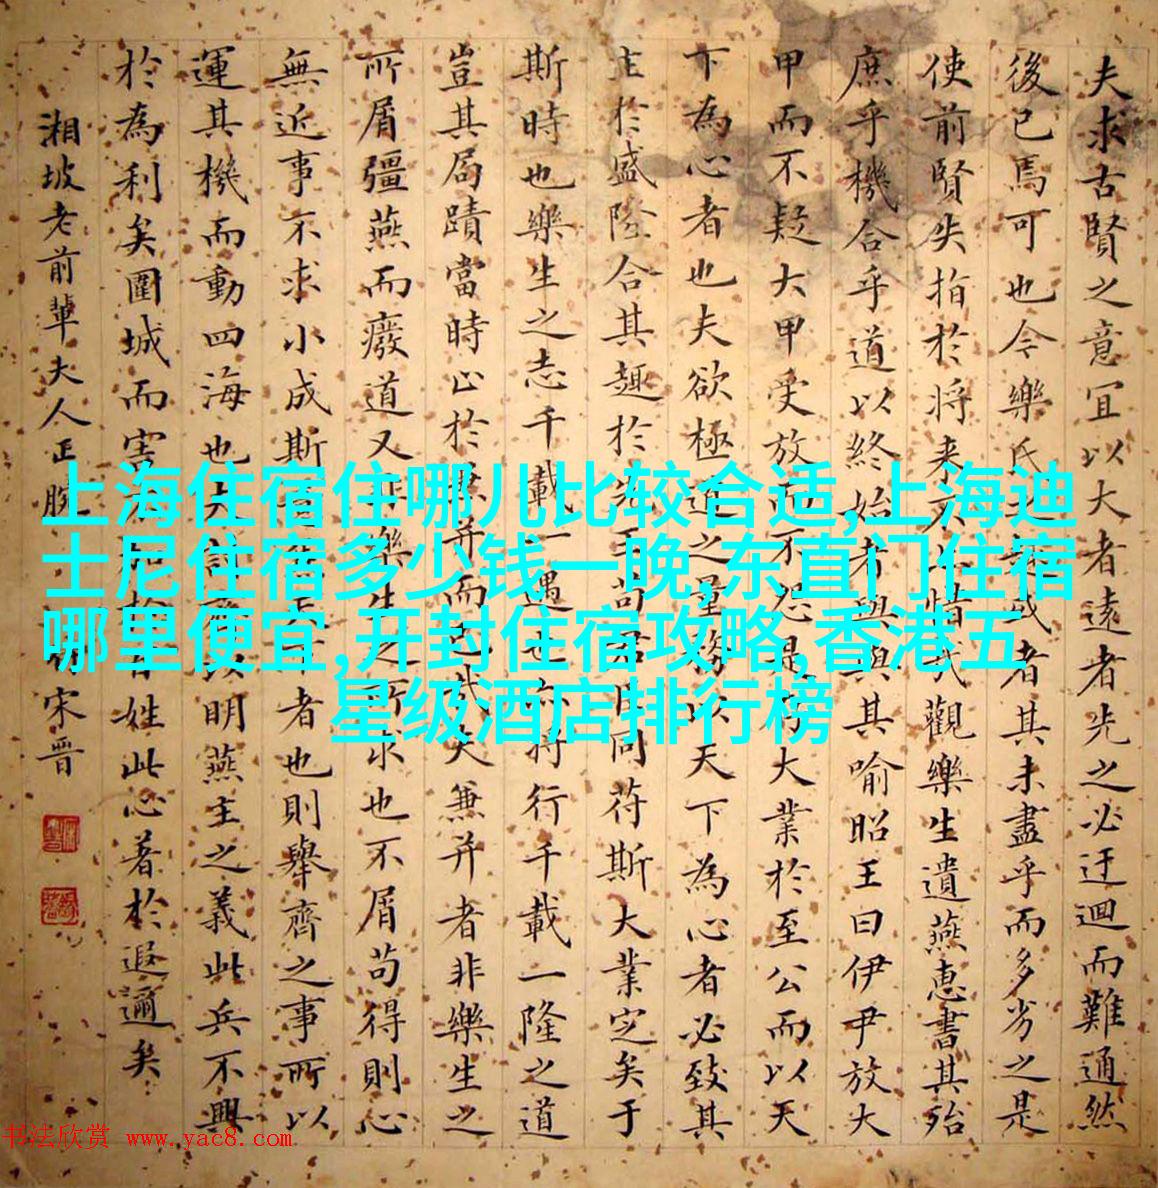 夫求古賢之意宜以大者遠者先之必迂迴而難通然
後已焉可也今樂氏之趣或者其未盡乎而多劣之是
使前賢失指於將来不亦惜哉觀樂生遺燕惠書其殆
庶乎機合乎道以終始者與與其喻昭王曰伊尹放大
甲而不疑大甲受放而不怨是存大業於至公而以天
下為心者也夫欲極道之量務以天下為心者必致其
主於盛隆合其趣於先王苟君臣同苻斯大業定矣于
斯時也樂生之志千載一遇也亦将行千載一隆之道
豈其局蹟當時止於兼并而已哉夫兼并者非樂生之
所屑彊燕而廢道又非樂生之所求也不屑苟得則心
無近事不求小成斯意兼天下者也則舉齊之事所以
運其機而動四海也夫討齊以明燕主之義此兵不興
於為利矣圍城而害不加於百姓此心著於遐邇矣
湘坡老前輩夫人正腕
宋晋
上海住宿住哪儿比较合适,上海迪
士尼住宿多少钱一晚,东直门住宿
哪里便宜,开封住宿攻略,香港五
星级酒店排行榜
书法欣赏 www.yac8.com